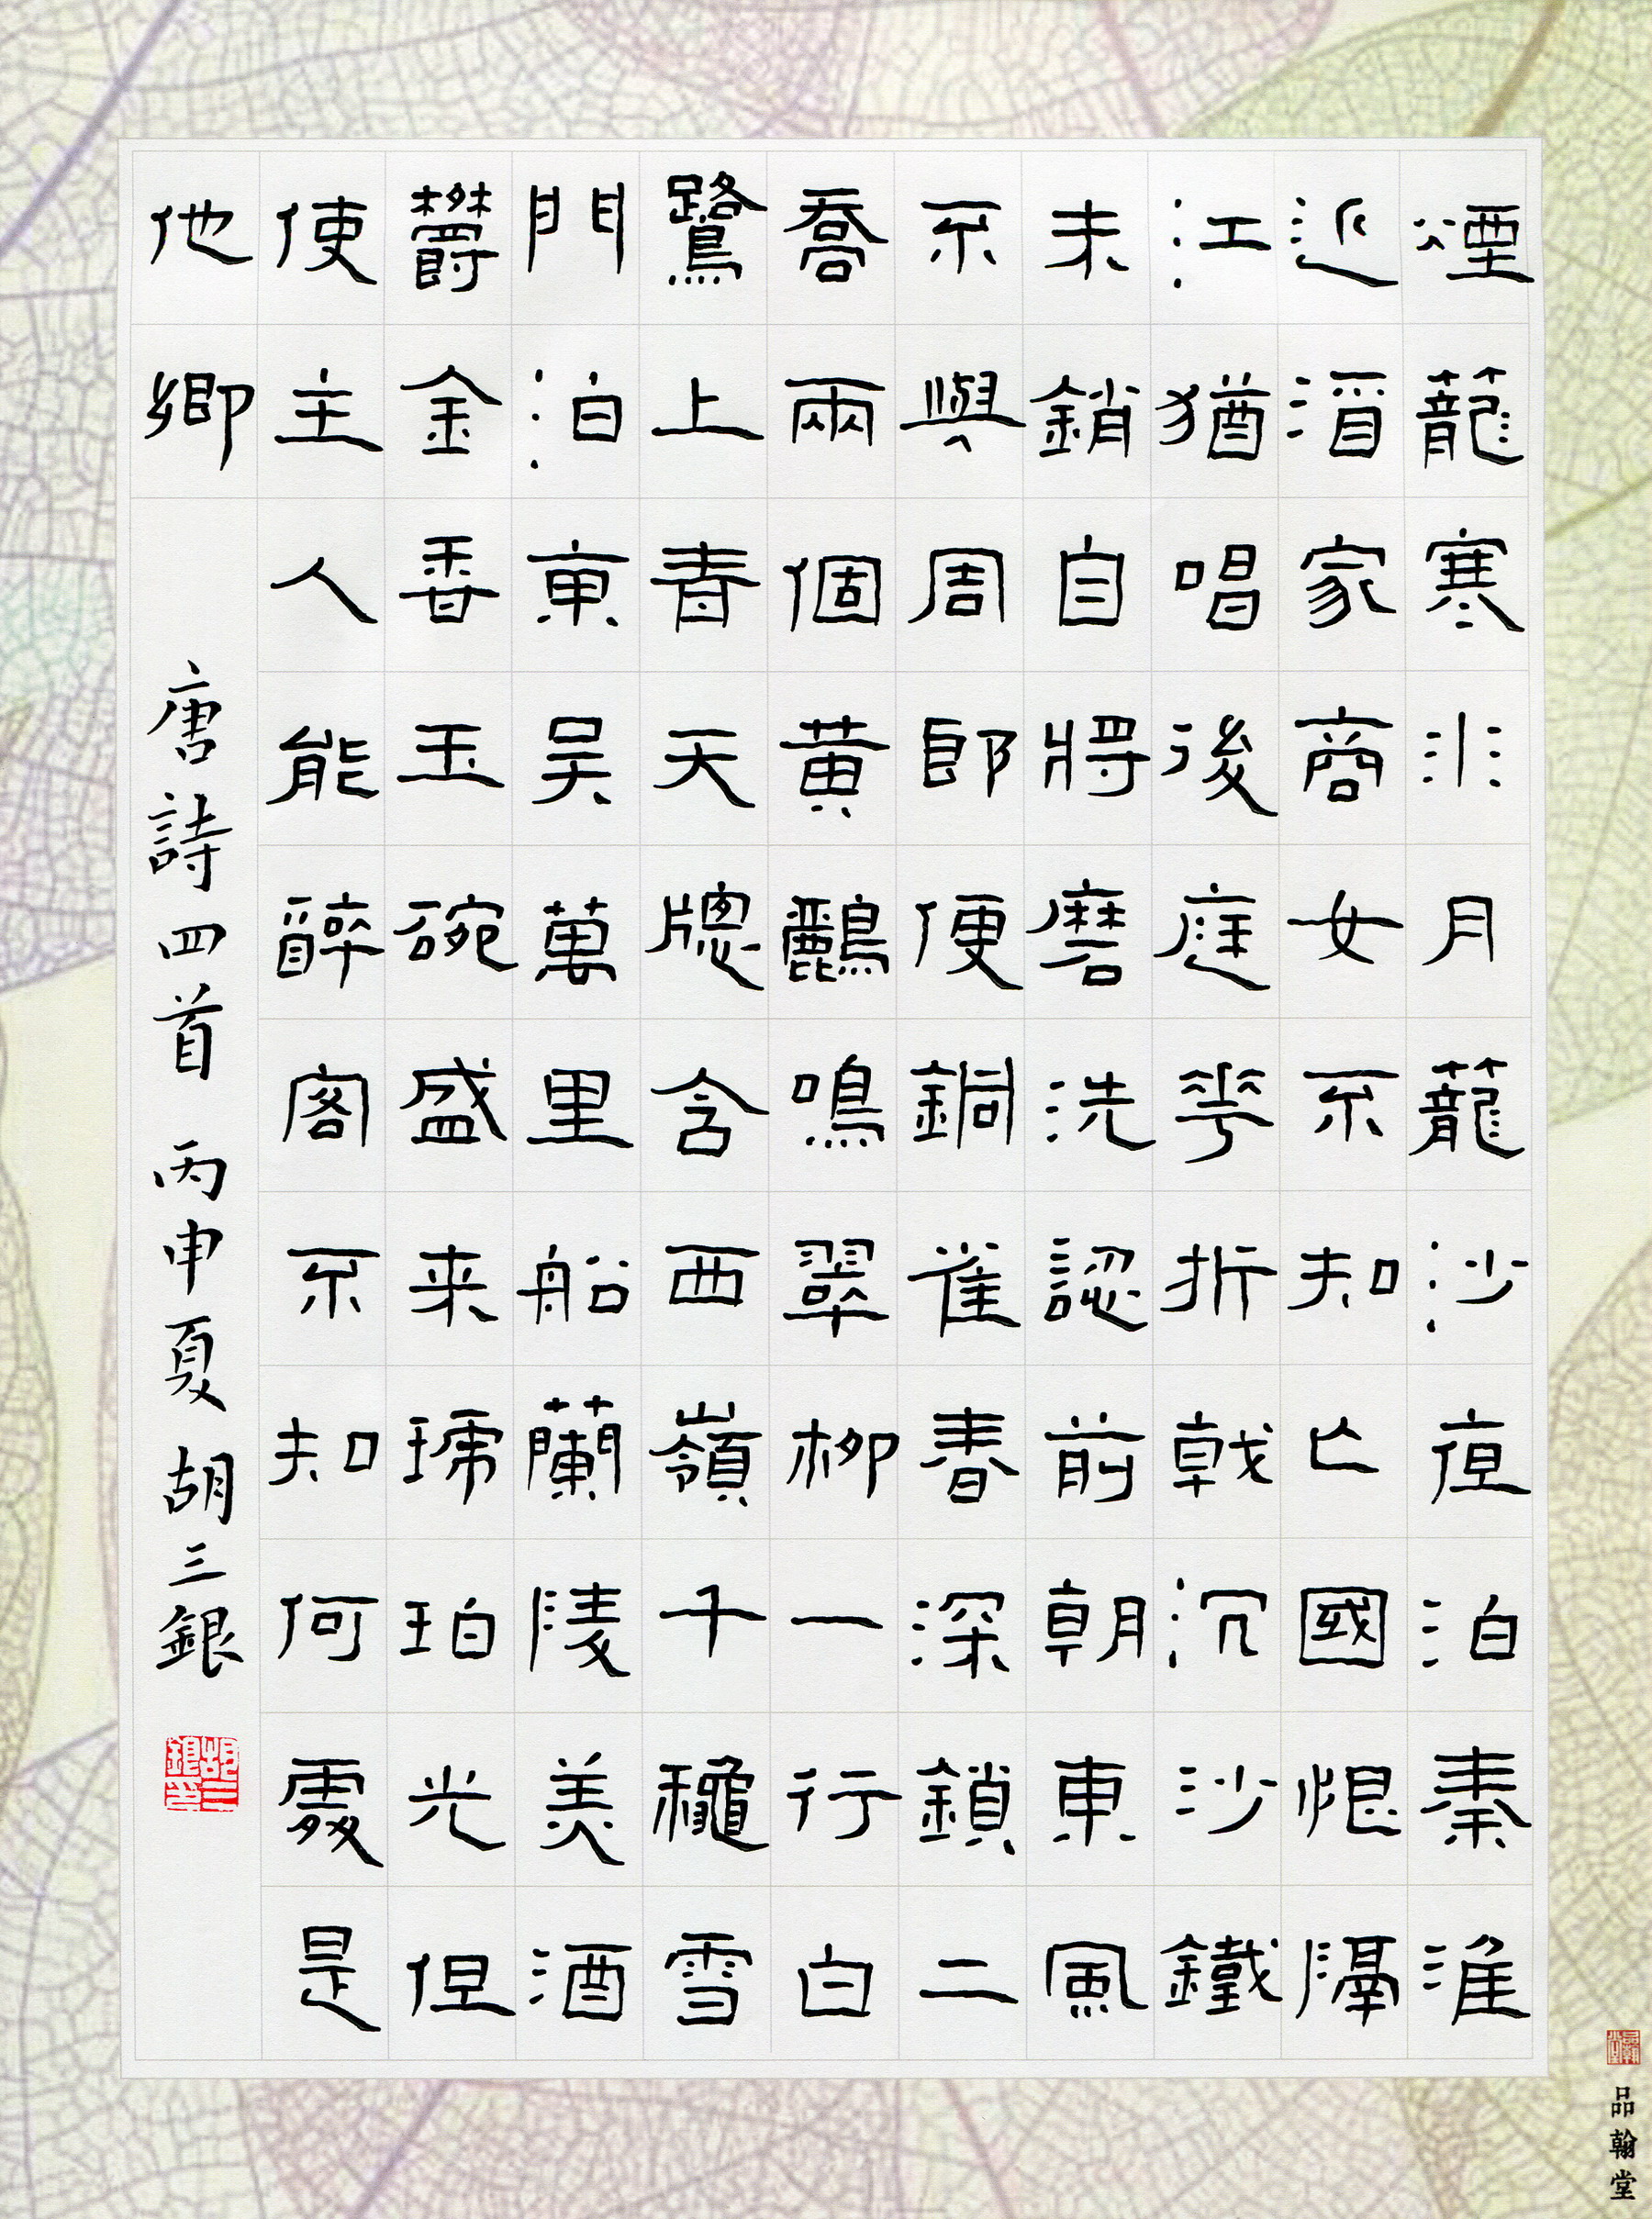 煙籠寒水月籠沙夜泊秦淮
近酒家商女不知亡國恨隔
江猶唱後庭花折戟沉沙鐵
未銷自將磨洗認前朝東風
不與周郎便銅雀春深鎖二
喬兩個黄鸝鳴翠柳一行白
鷺上青天牕含西嶺千穐雪
門泊東吴萬里船蘭陵美酒
鬱金香玉碗盛来琥珀光但
使主人能醉客不知何處是
他鄉
唐詩四首 丙申夏 胡三銀
胡三銀印
品翰堂
品翰堂